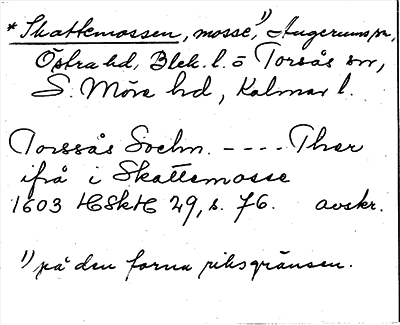 * Skattemossen, mosse,¹⁾ Augerums sn,
Östra hd, Blek. l. o Torsås sn,
S. Möre hd, Kalmar l.
Torssås Sochn. ---- Ther
ifrå i Skattemosse
1603 HSkH 29, s. 76. avskr.
¹⁾ på den forna riksgränsen.